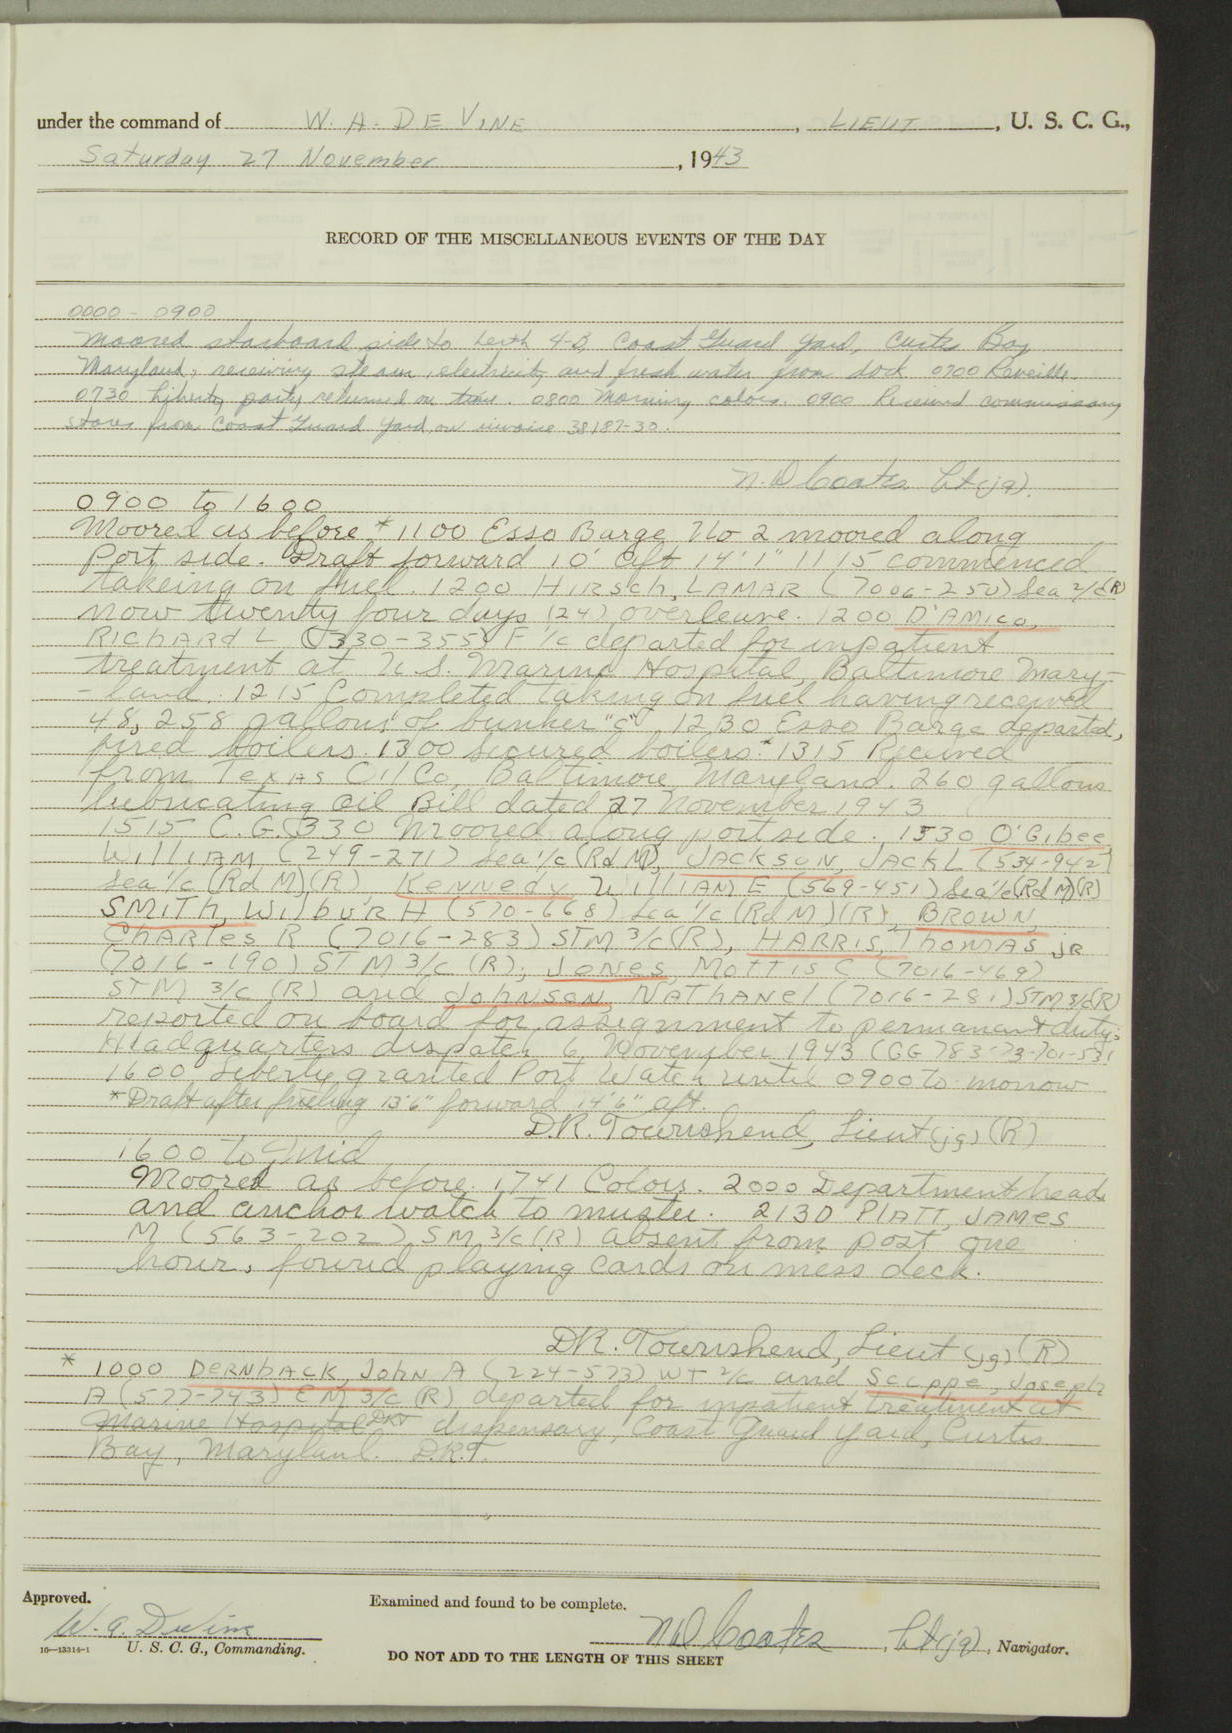 under the command of W. A. DE VINE, LIEUT, U. S. C. G.,
Saturday 27 November, 1943
RECORD OF THE MISCELLANEOUS EVENTS OF THE DAY
0000 - 0900
Moored starboard side to berth 4-D, Coast Guard Yard, Curtis Bay
Maryland, receiving steam, electricity and fresh water from dock 0700 Reveille.
0730 Liberty party returned on time. 0800 Morning colors. 0900 Received commissary
stores from Coast Guard Yard, on invoice 38187-30.
N.D Coates Lt(jg).
0900 to 1600
Moored as before * 1100 Esso Barge No 2 moored along
Port side. Draft forward 10' aft 14' 1" 1115 commenced
takeing on fuel. 1200 HIRSCH, LAMAR (7006-250) Sea 2/c(R)
now twenty four days (24) overleave. 1200 D'AMICO,
RICHARD L (330-355) F 1/c departed for inpatient
treatment at U.S. Marine Hospital, Baltimore Mary-
-land. 1215 Completed taking on fuel having received
48,258 gallons of bunker "C". 1230 Esso Barge departed,
fired boilers. 1300 secured boilers.* 1315 Received
from Texas Oil Co, Baltimore, Maryland. 260 gallons
lubricating oil Bill dated 27 November 1943
1515 C.G. 330 Moored along port side. 1530 O'Gibee
WILLIAM (249-271) Sea 1/c (Rd M), JACKSON, JACK L (534-942)
Sea 1/c (Rd M)(R) KENNEDY WILLIAM E (569-451) Sea 1/c(Rd M)(R)
SMITH, WILBUR H (570-668) Sea 1/c (Rd M)(R), BROWN,
CHARLES R (7016-283) STM 3/c(R), HARRIS, THOMAS JR
(7016-190) STM 3/c (R), JONES, MOTTIS C (7016-469)
STM 3/c (R) and JOHNSON, NATHANEL (7016-281) STM 3/c(R)
reported on board for assignment to permanent duty:
Headquarters dispatch 6 November 1943 (CG 783-73-701-531
1600 Liberty granted Port Watch until 0900 to-morrow
*Draft after fueling 13'6" forward 14'6" aft.
D.R. Townshend, Lieut (jg) (R)
1600 to Mid
Moored as before. 1741 Colors. 2000 Department heads
and anchor watch to muster. 2130 PLATT, JAMES
M (563-202) SM 3/c (R) absent from post one
hour, found playing cards on mess deck.
D.R. Townshend, Lieut (jg) (R)
* 1000 DERNBACK, John A (224-573) WT 2/c and Scappe, Joseph
A (577-743) EM 3/c (R) departed for inpatient treatment at
Marine Hospital DRT dispensary, Coast Guard Yard, Curtis
Bay, Maryland. D.R.T.
Approved.
Examined and found to be complete.
W. A. DeVine
N D Coates, Lt(jg), Navigator.
16—13314-1 U. S. C. G., Commanding.
DO NOT ADD TO THE LENGTH OF THIS SHEET